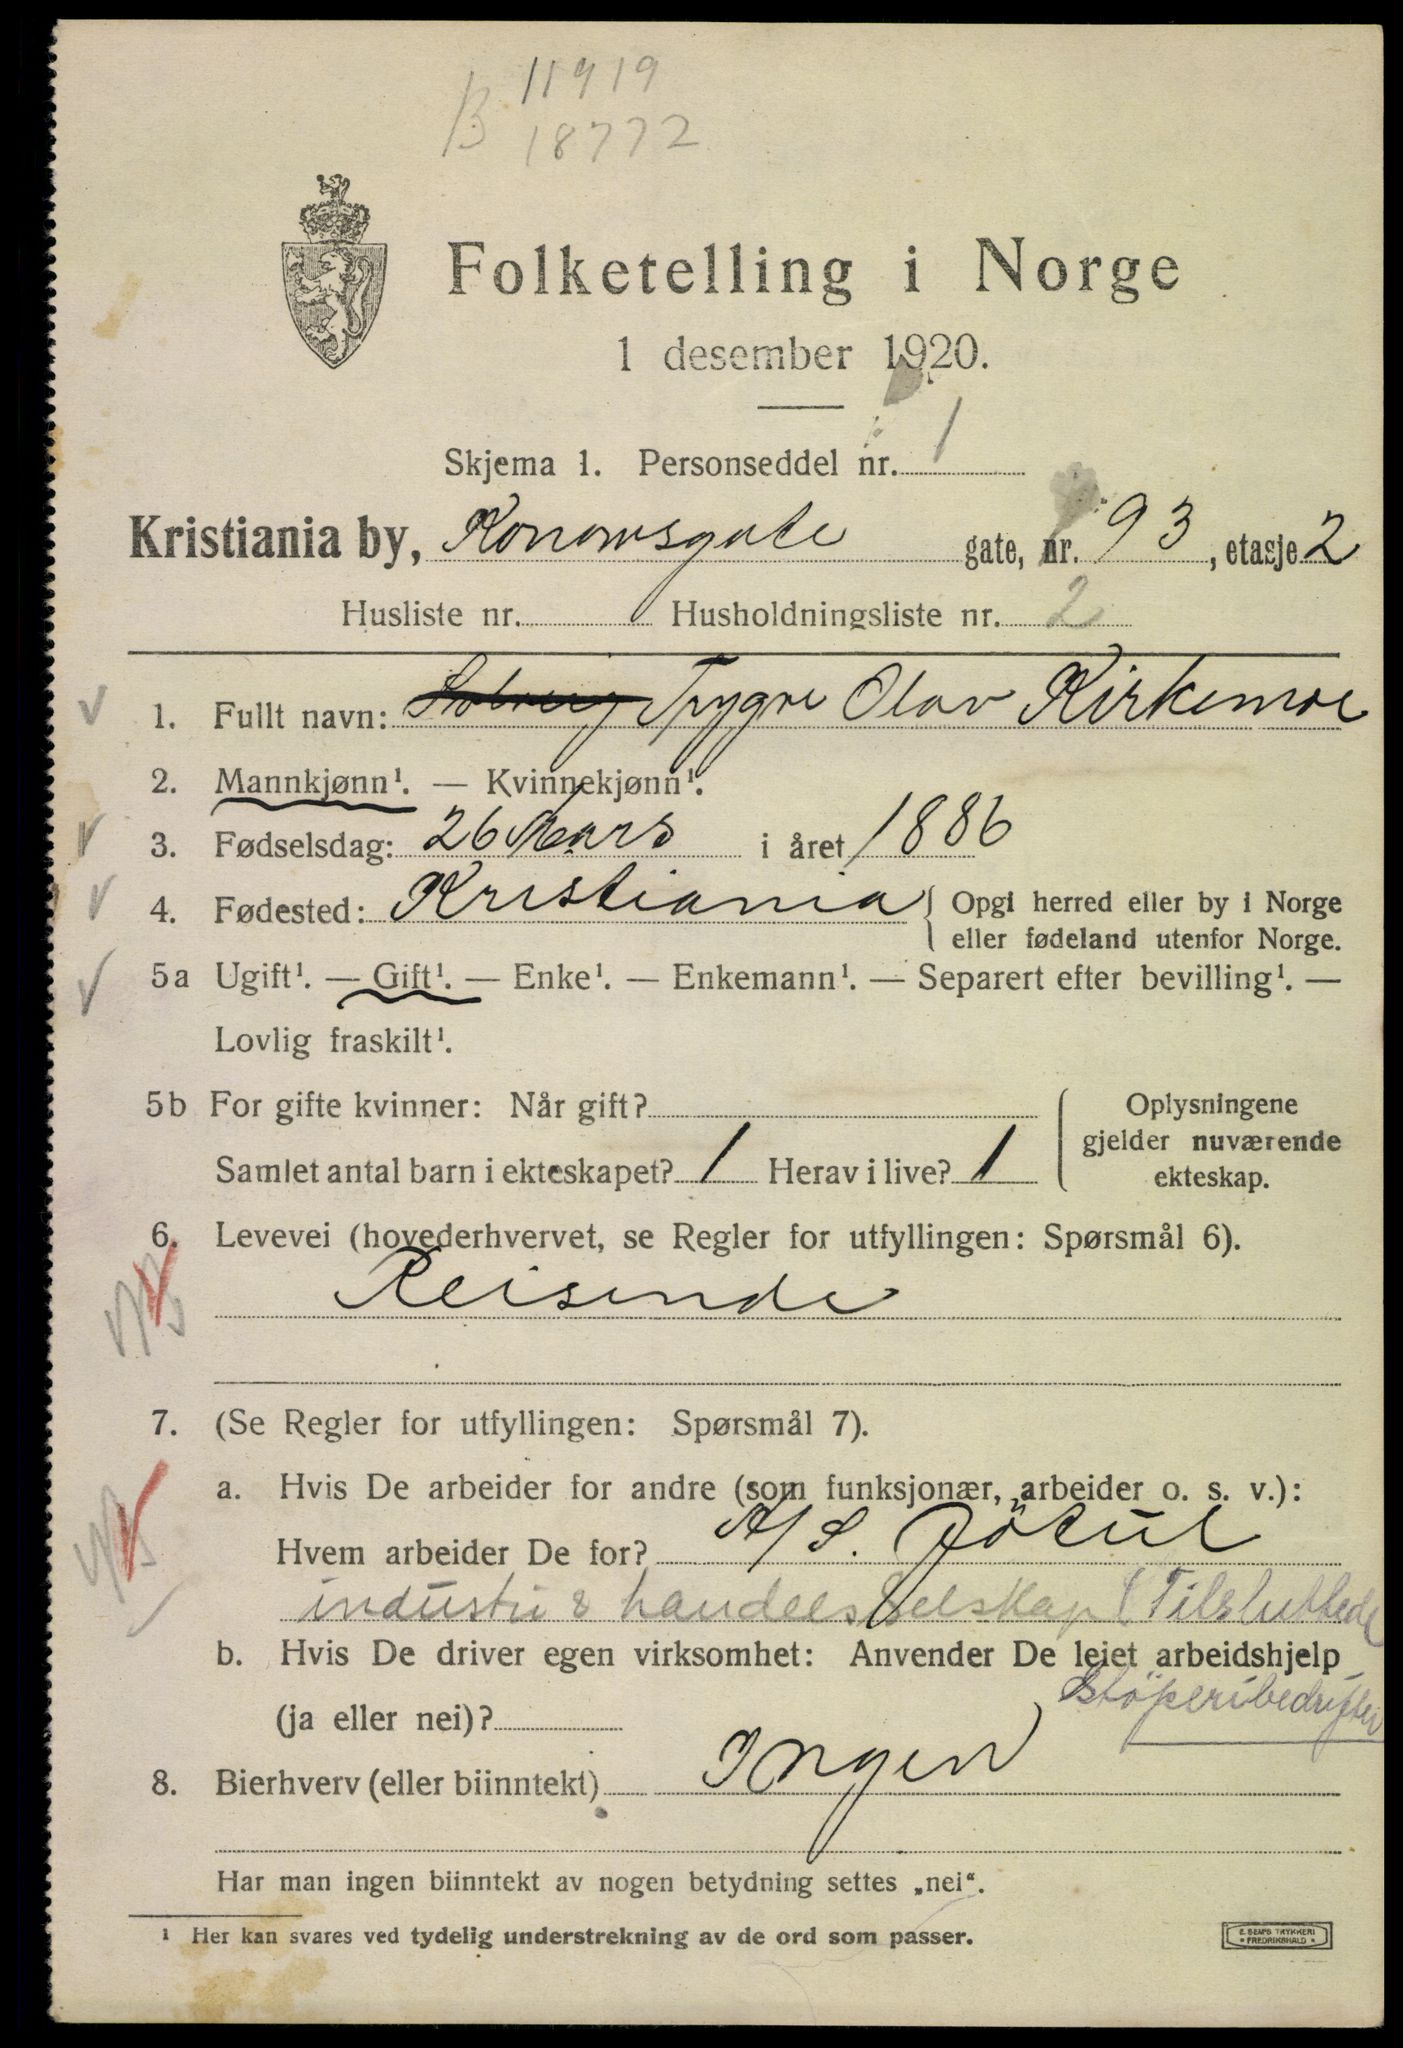 B 11919
18772
Folketelling i Norge
1 desember 1920.
Skjema 1. Personseddel nr. 1
Kristiania by, Konowsgate gate, nr. 93, etasje 2
Husliste nr. Husholdningsliste nr. 2
1. Fullt navn: Solveig Trygve Olav Kirkemoe
2. Mannkjønn¹. — Kvinnekjønn¹.
3. Fødselsdag: 26 Mars i året 1886
4. Fødested: Kristiania { Opgi herred eller by i Norge
eller fødeland utenfor Norge.
5a Ugift¹. — Gift¹. — Enke¹. — Enkemann¹. — Separert efter bevilling¹. —
Lovlig fraskilt¹.
5b For gifte kvinner: Når gift? Oplysningene
gjelder nuværende
Samlet antal barn i ekteskapet? 1 Herav i live? 1 ekteskap.
6. Levevei (hovederhvervet, se Regler for utfyllingen: Spørsmål 6).
Reisende
7. (Se Regler for utfyllingen: Spørsmål 7).
a. Hvis De arbeider for andre (som funksjonær, arbeider o. s. v.):
Hvem arbeider De for? A/S. Jötul
industri & handelsselskap (Tilsluttede
b. Hvis De driver egen virksomhet: Anvender De leiet arbeidshjelp
støperibedrifter
(ja eller nei)?
8. Bierhverv (eller biinntekt) Ingen
Har man ingen biinntekt av nogen betydning settes „nei“.
¹ Her kan svares ved tydelig understrekning av de ord som passer.
E. SEMS TRYKKERI
* FREDRIKSHALD *